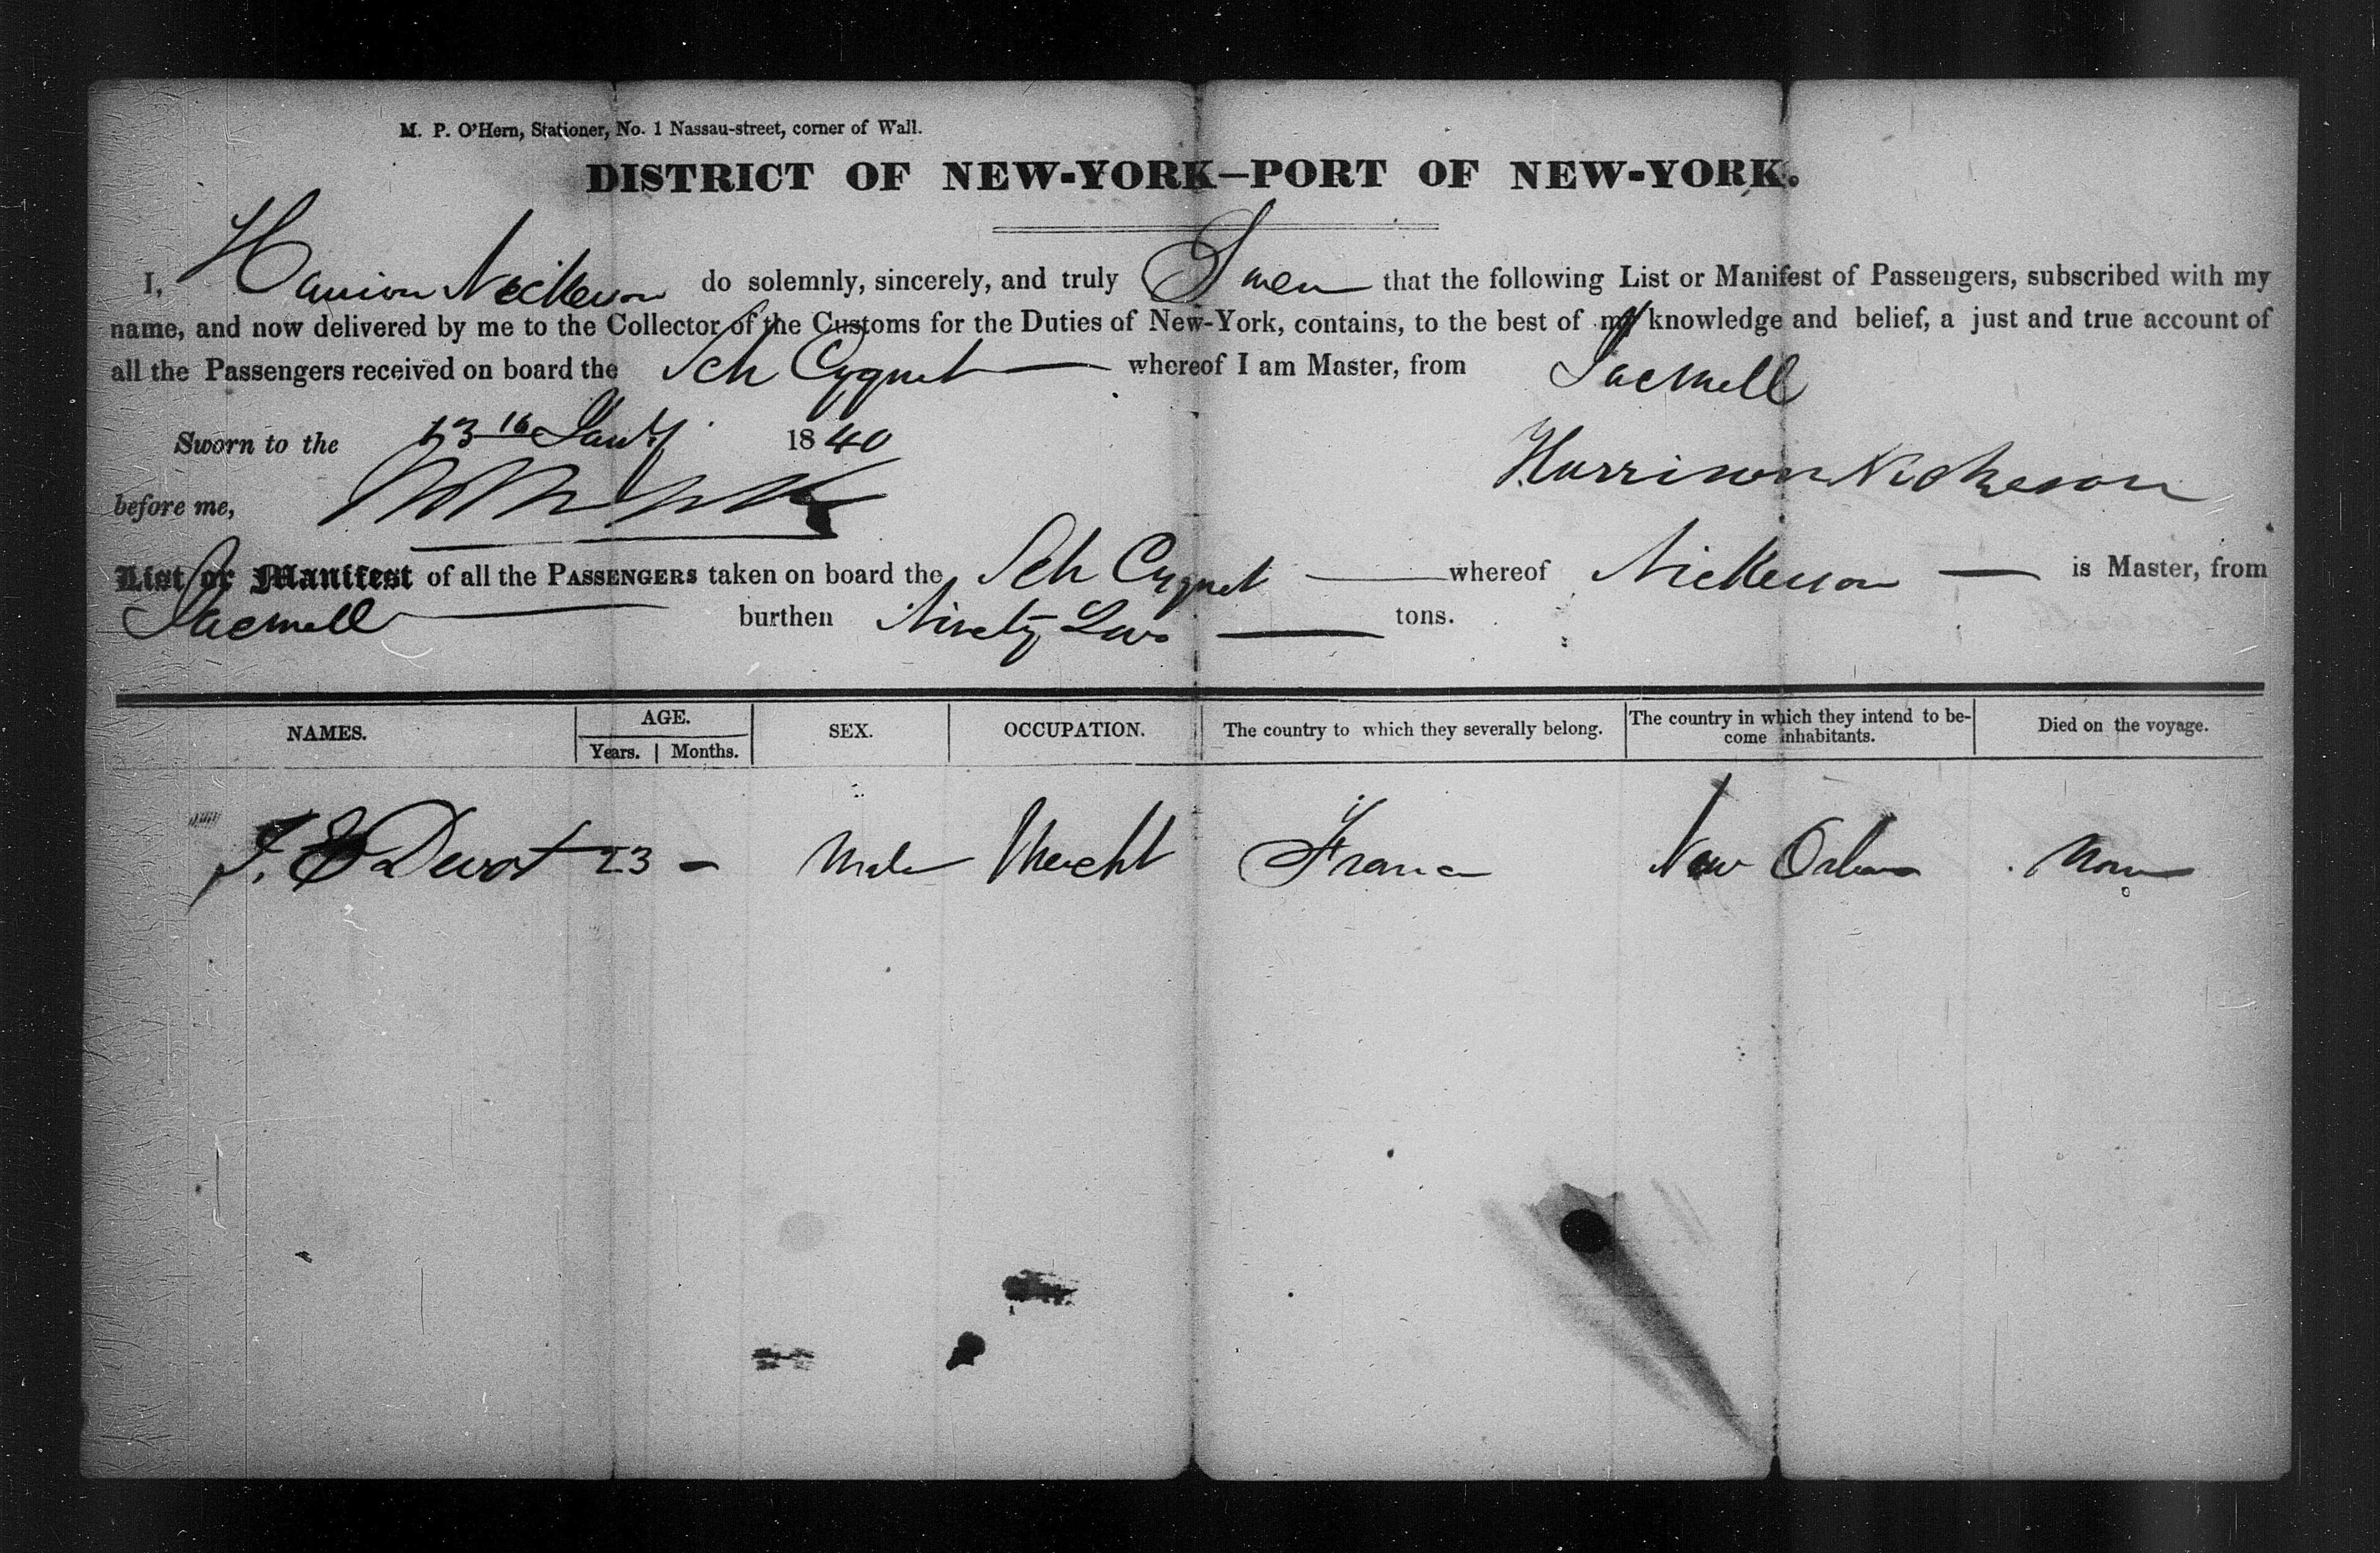 M. P. O'Hern, Stationer, No. 1 Nassau-street, corner of Wall.
DISTRICT OF NEW-YORK—PORT OF NEW-YORK.
I, Harrison Nickerson do solemnly, sincerely, and truly Swear that the following List or Manifest of Passengers, subscribed with my
name, and now delivered by me to the Collector of the Customs for the Duties of New-York, contains, to the best of my knowledge and belief, a just and true account of
all the Passengers received on board the Sch Cygnet whereof I am Master, from Jacmell
Sworn to the Jany 1840
Harrison Nickerson
before me,
List or Manifest of all the PASSENGERS taken on board the Sch Cygnet whereof Nickerson is Master, from
Jacmell burthen Ninety Two tons.
NAMES. AGE. SEX. OCCUPATION. The country to which they severally belong. The country in which they intend to be- Died on the voyage.
Years. Months. come inhabitants.
J. E Devot 23 - Male Mercht France New Orleans None